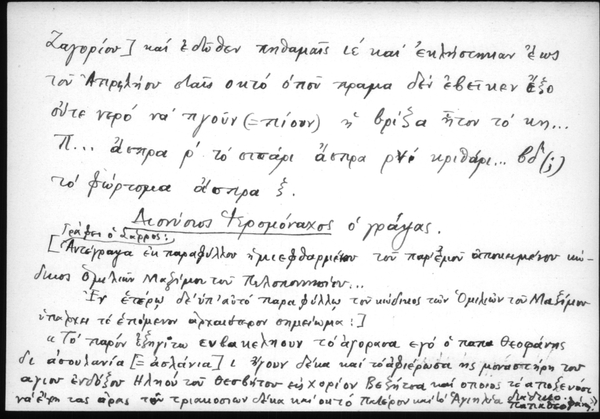 Ζαγορίου] καί ἐδῶθεν πηθαμαῖς ιέ καί ἐκλήστηκαν ἕως
τοῦ Ἀπρηλήου σταῖς οκτό ὁποῦ πραμα δέν ἐβεῖκεν ἔξο
οὔτε νερό νά πγοῦν (= πίουν) ἡ βρίζα ἦτον τό κη...
Π... ἄσπρα ρ' τό σιτάρι ἄσπρα κριθάρι... βδ(;)
τό φώρτομα ἄσπρα ξ.
Διονύσιος Ἱερομόναχος ὁ γράψας.
Γράφει ὁ Σάρρος:
[Ἀντέγραψα ἐκ παραφύλλου ἡμιεφθαρμένου τοῦ παρ' ἐμοί ἀποκειμένου κώ-
δικος Ὁμιλιῶν Μαξίμου τοῦ Πελοποννησίου...
Ἐν ἑτέρῳ δέ ὑπ' αὐτό παραφύλλῳ τοῦ κώδικος τῶν Ὁμιλιῶν τοῦ Μαξίμου
ὑπάρχει τό ἑπόμενον ἀρχαιότερον σημείωμα:]
«Τό παρόν ἐξηγίτω ευβακελήουν τό αγορασα εγό ὁ παπα Θεοφάνης
δι ἀσουλανία [= ἀσλάνια] ι ἤγουν δέκα καί τό ἀφιέρωσα εἰς μοναστήρη τοῦ
αγιου ἐνδόξου Ηληού του Θεσβήτου εις χορίον Βεζήτσα καί οποιος το αποξενόσι
νά έχη τας αρας τον τριακοσιων δέκα καί οκτό Πατερον καί
παπαθεοφάνης»